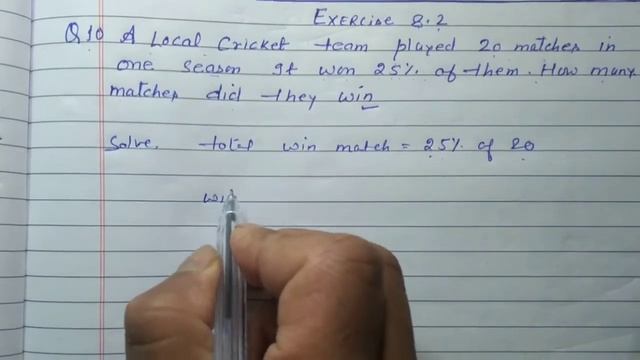 Exercise 8.2
Q10 A Local Cricket team played 20 matches in
one season It won 25% of them. How many
matches did they win
Solve. total win match = 25% of 20
wi